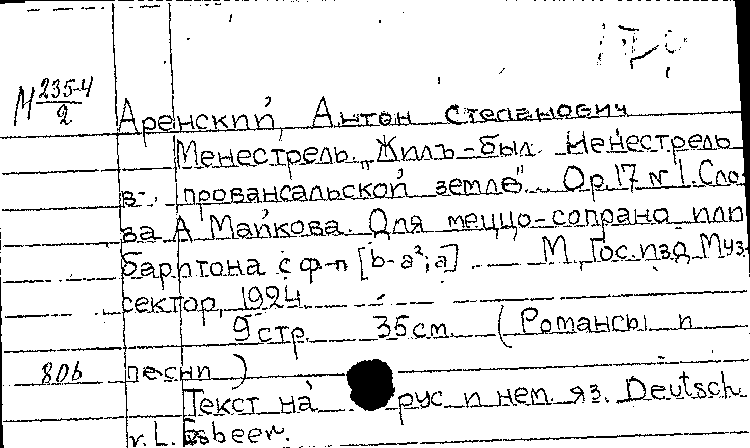 М 235-4/2
Аренский, Антон Степанович
Менестрель. „Жилъ-был Менестрель
в провансальской земле" Op.17 №1. Сло-
ва А Майкова. Для меццо-сопрано или
баритона с ф-п [b-a²; a] М, Гос. изд Муз.
сектор, 1924
9 стр. 35 см. (Романсы и
806 песни)
Текст на рус и нем. яз. Deutsch
v. L. Esbeer.